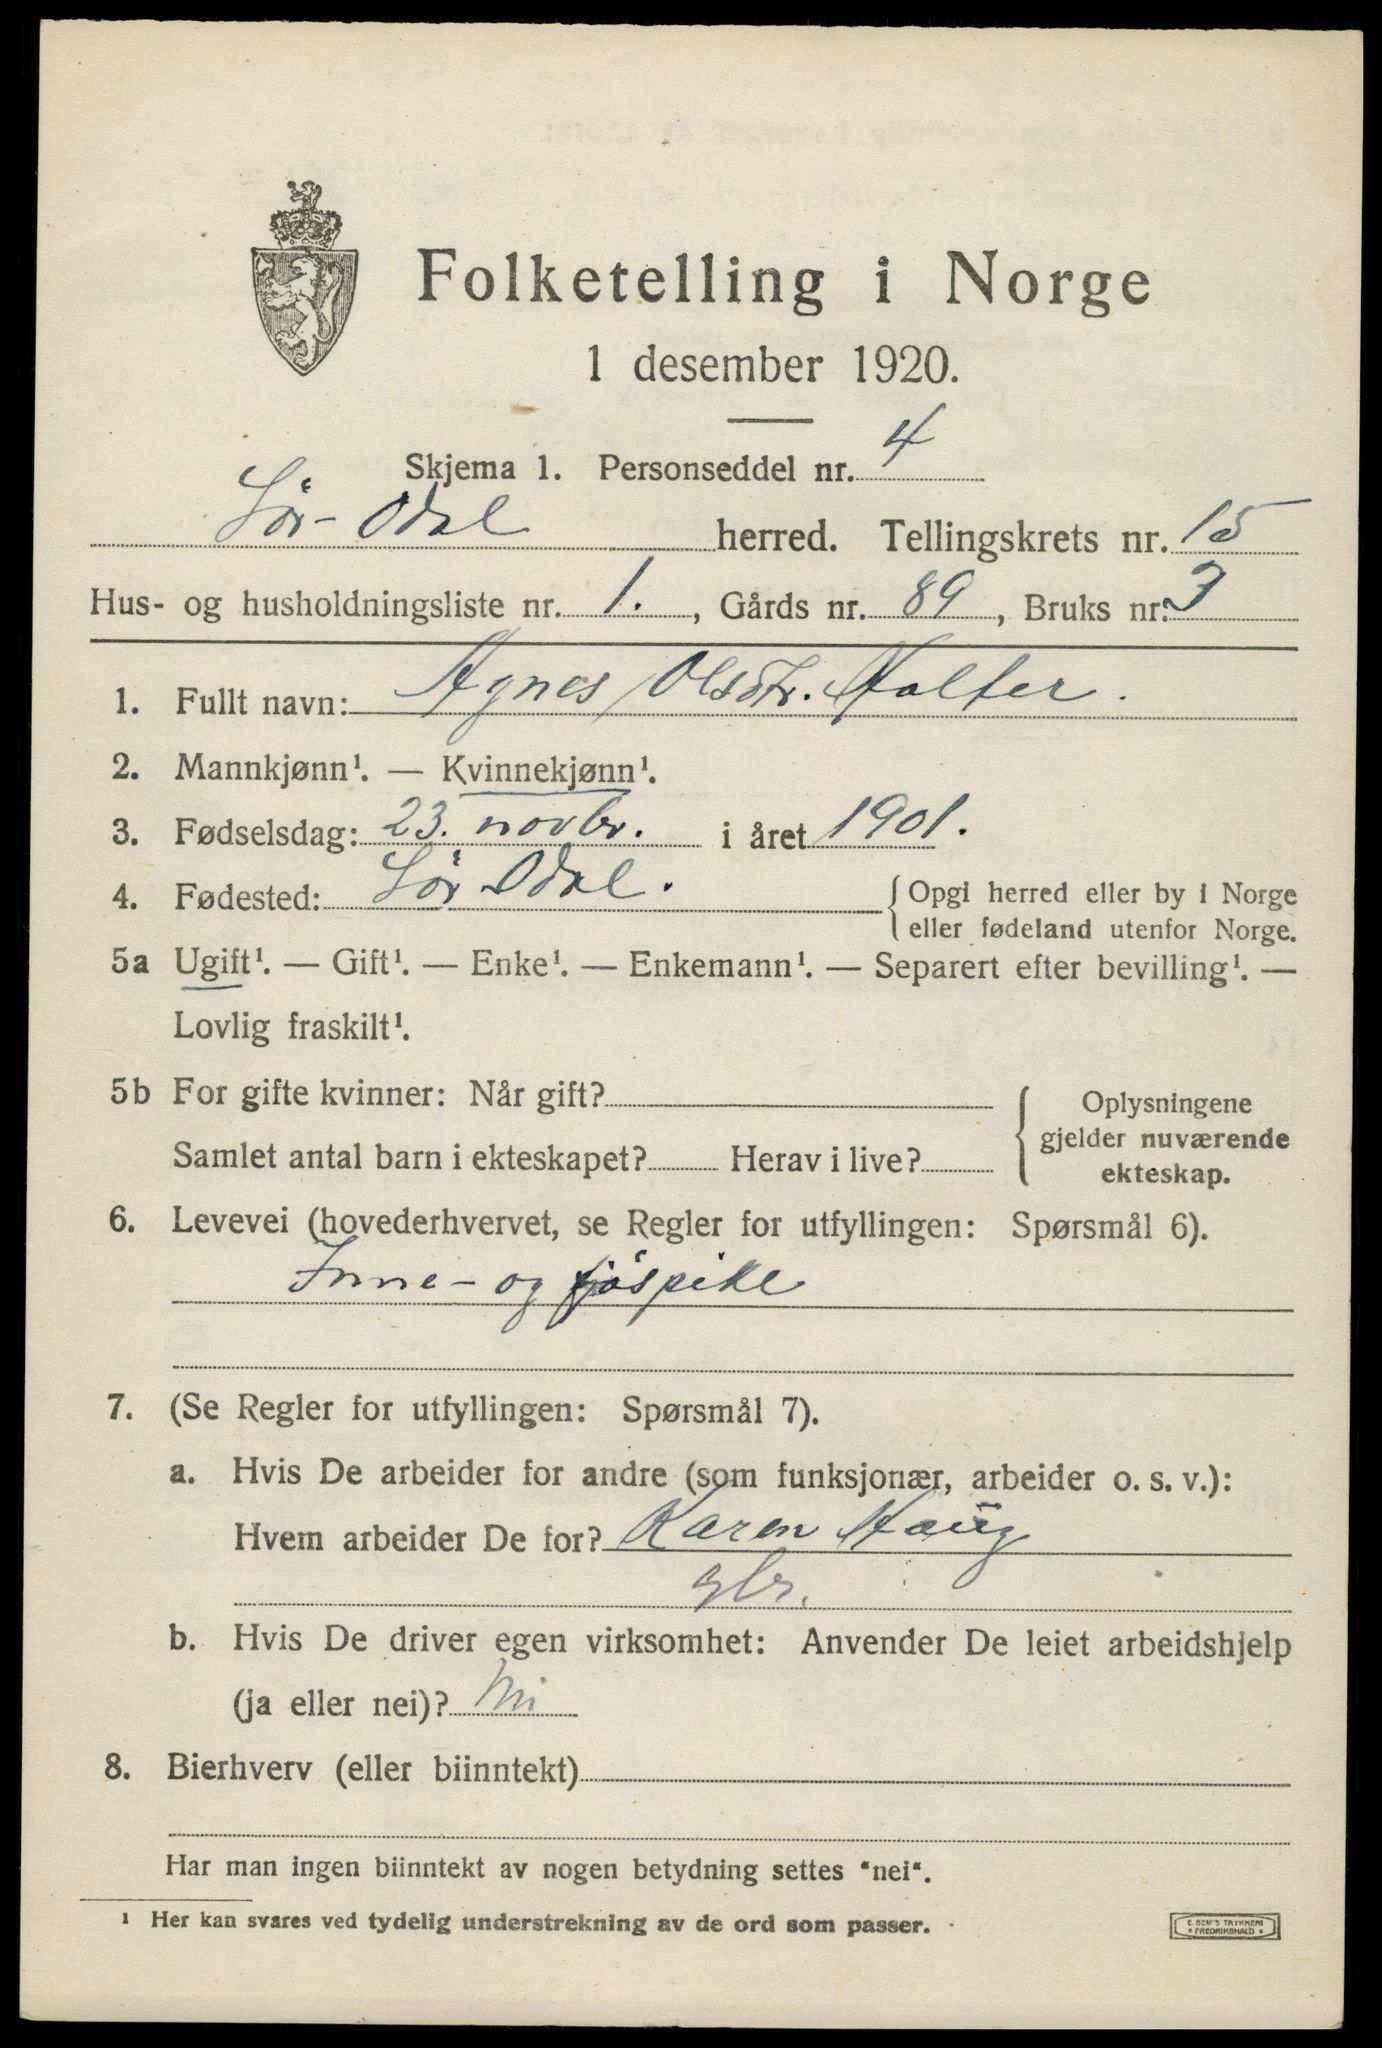 Folketelling i Norge
1 desember 1920.
Skjema 1. Personseddel nr. 4
Sör-Odal herred. Tellingskrets nr. 15
Hus- og husholdningsliste nr. 1. , Gårds nr. 89, Bruks nr. 3
1. Fullt navn: Agnes Olsdtr. Halfer.
2. Mannkjønn¹. — Kvinnekjønn¹.
3. Fødselsdag: 23. novbr. i året 1901.
4. Fødested: Sör Odal. { Opgi herred eller by i Norge
eller fødeland utenfor Norge.
5a Ugift¹. — Gift¹. — Enke¹. — Enkemann¹. — Separert efter bevilling¹. —
Lovlig fraskilt¹.
5b For gifte kvinner: Når gift?
Samlet antal barn i ekteskapet? Herav i live?
Oplysningene
gjelder nuværende
ekteskap.
6. Levevei (hovederhvervet, se Regler for utfyllingen: Spørsmål 6).
Inne- og fjöspike
7. (Se Regler for utfyllingen: Spørsmål 7).
a. Hvis De arbeider for andre (som funksjonær, arbeider o. s. v.):
Hvem arbeider De for? Karen Haug
gbr.
b. Hvis De driver egen virksomhet: Anvender De leiet arbeidshjelp
(ja eller nei)? Nei
8. Bierhverv (eller biinntekt)
Har man ingen biinntekt av nogen betydning settes "nei".
¹ Her kan svares ved tydelig understrekning av de ord som passer.
E. SEM'S TRYKKERI
FREDRIKSHALD